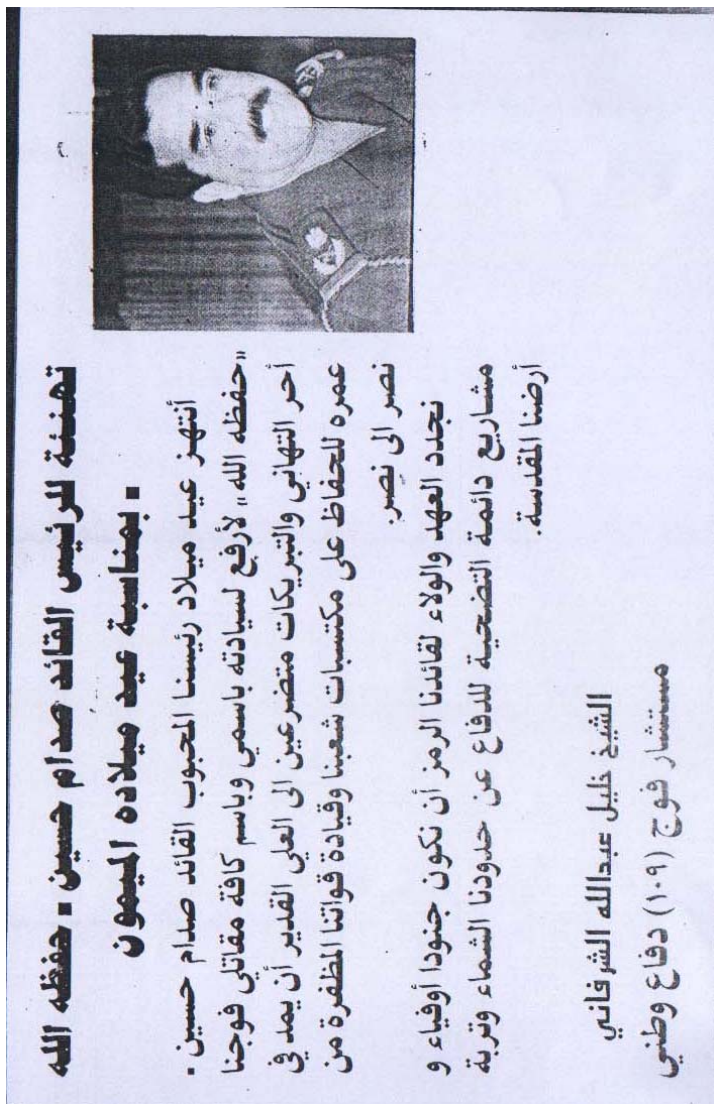 تهنئة للرئيس القائد صدام حسين - حفظه الله
- بمناسبة عيد ميلاده الميمون
أنتهز عيد ميلاد رئيسنا المحبوب القائد صدام حسين -
«حفظه الله» لأرفع لسيادته باسمي وباسم كافة مقاتلي فوجنا
أحر التهاني والتبريكات متضرعين الى العلي القدير أن يمد في
عمره للحفاظ على مكتسبات شعبنا وقيادة قواتنا المظفرة من
نصر الى نصر.
نجدد العهد والولاء لقائدنا الرمز أن نكون جنودا أوفياء و
مشاريع دائمة التضحية للدفاع عن حدودنا الشماء وتربة
أرضنا المقدسة.
الشيخ خليل عبدالله الشرفاني
مستشار فوج (١٠٩) دفاع وطني